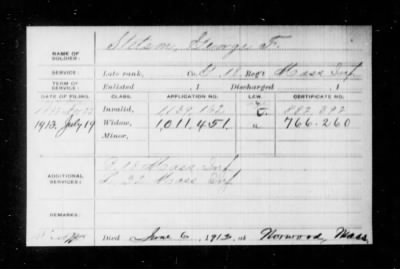 NAME OF SOLDIER: Stetson, George F.
SERVICE: Late rank, Co. 18 Reg't Mass Inf
Enlisted , 1 Discharged , 1
DATE OF FILING. CLASS. APPLICATION NO. LAW. CERTIFICATE NO.
Invalid, 1139.132 882.892
1913, July 19 Widow, 1,011,451 " 766.260
Minor,
ADDITIONAL SERVICES: Mass Inf
32 Mass Inf
REMARKS:
Died June 6, 1913, at Norwood, Mass